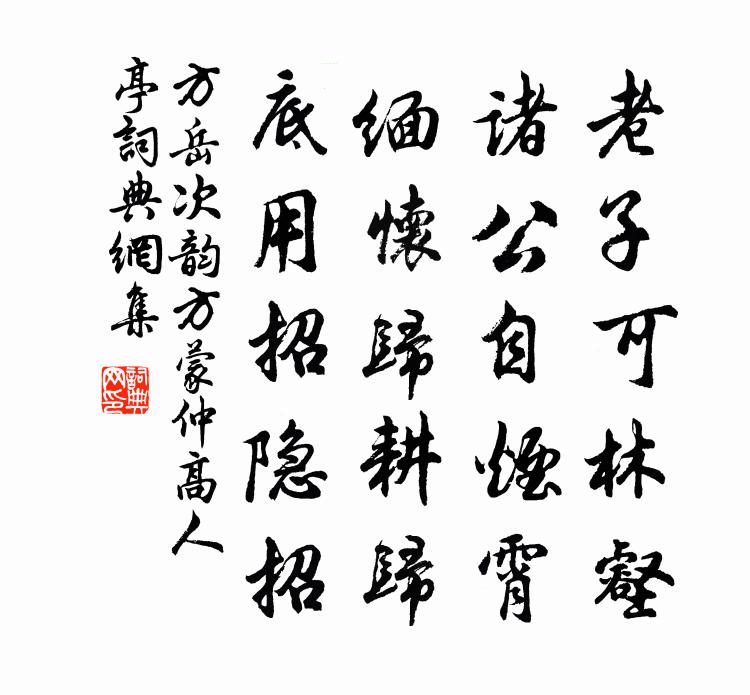 老子可林壑
诸公自煙霄
緬懷歸耕歸
底用招隐招
方岳次韵方蒙仲高人
亭詞典網集
詞典网印